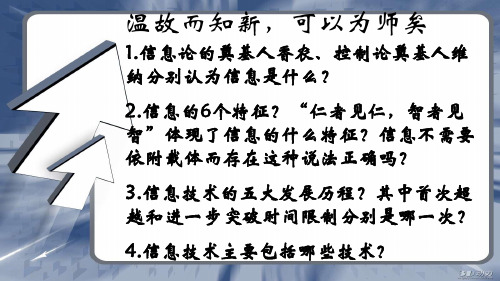 温故而知新，可以为师矣
1.信息论的奠基人香农、控制论奠基人维
纳分别认为信息是什么？
2.信息的6个特征？“仁者见仁，智者见
智”体现了信息的什么特征？信息不需要
依附载体而存在这种说法正确吗？
3.信息技术的五大发展历程？其中首次超
越和进一步突破时间限制分别是哪一次？
4.信息技术主要包括哪些技术？